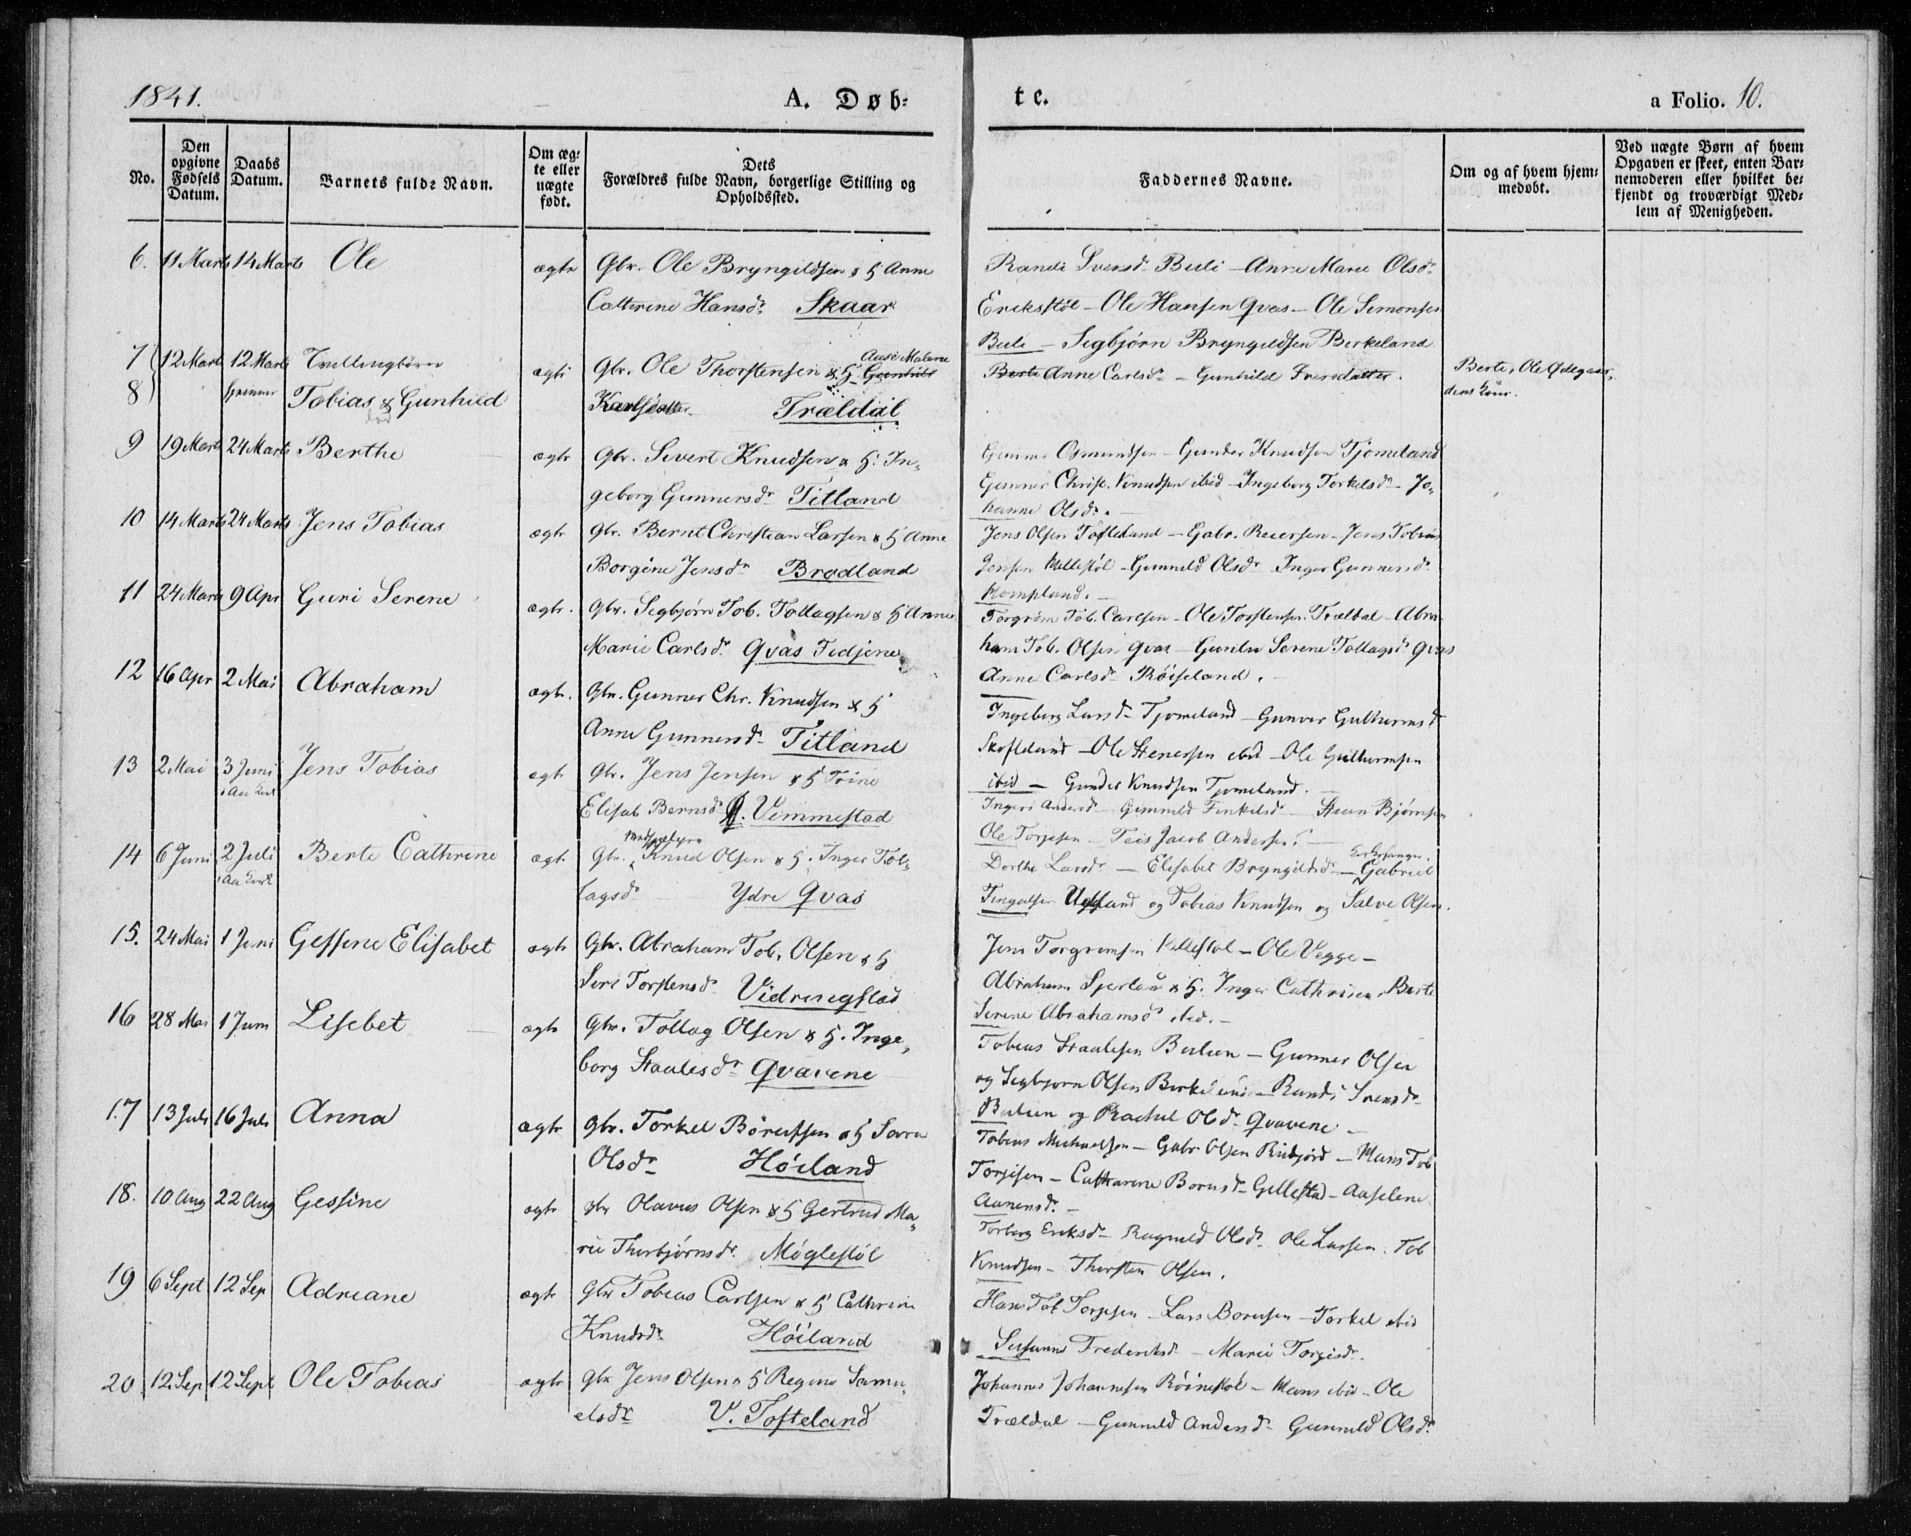 1841.
A. Døb-
te.
a Folio. 10.
No.
Den opgivne Fødsels Datum.
Daabs Datum.
Barnets fulde Navn.
Om ægte eller uægte født.
Dets Forældres fulde Navn, borgerlige Stilling og Opholdssted.
Faddernes Navne.
Om og af hvem hjemmedøbt.
Ved uægte Børn af hvem Opgaven er skeet, enten Barnemoderen eller hvilket bekjendt og troværdigt Medlem af Menigheden.
6. 11 Marts 14 Marts Ole ægte Gbr. Ole Bryngildsen & H Anne
Cathrine Hansdr Skaar
Randi Svensdr Buli - Anne Marie Olsdr
Eriksstøl - Ole Hansen Qvas - Ole Simonsen
Buli - Segbjørn Bryngildsen Birkeland
7 12 Marts 12 Marts Tvillingbørn ægte Gbr. Ole Thorstensen & H Gunhild
8 hjemme Tobias & Gunhild
Karlsdatter Træltdal
Berte Anne Carlsdr - Gunhild Svensdatter.
Berte, Ole Ødegaardens Kone.
9 19 Marts 24 Marts Berthe ægte Gbr. Sivert Knudsen & H. In-
geborg Gunnersdr Titland
Osmundsen - Gunder Knudsen Tjomeland
Gunner Christ. Knudsen ibid - Ingeborg Torkelsdr - Jo-
hanne Olsdr.
10 14 Marts 24 Marts Jens Tobias ægte Gbr. Bernt Christian Larsen & H Anne
Borgine Jensdr Brodland
Jens Olsen Tofteland - Gabr. Reiersen - Jens Tobias
Jensen Kellestøl - Gunnild Olsdr Inger Gunnersdr
Kompland.
11 24 Marts 9 Apr Guri Serene ægte. Gbr. Segbjørn Tob. Tollagsen & H Anne
Marie Carlsdr Qvas Tedjene
Torgrim Tob. Carlsen - Ole Torstensen Trældal - Abra-
ham Tob. Olsen Qvas - Serene Tollagsdr Qvas
Anne Carlsdr Røiseland.
12 16 Apr 2 Mai Abraham ægte. Gbr. Gunner Chr. Knudsen & H
Anne Gunnersdr Titland
Ingeborg Larsdr Tjomeland - Gunvor Guthormsd
Skofteland - Ole Stenersen ibid - Ole Guthormsen
ibid - Gunder Knudsen Tjomeland.
13 2 Mai 3 Juni Jens Tobias ægte Gbr. Jens Jensen & H Trine
i Aa Kirk
Elisab Bernsdr Vemmestad
Ingeri Andersd - Gunnild Tinkelsd - Steen Bjørnsen
Ole Torjesen - Teis Jacob Andersen
14 6 Juni 2 Juli Berte Cathrine ægte. Gbr. Knud Olsen & H. Inger Tol-
i Aa Kirk
lagsdr Ydre Qvas
Dorthe Larsdr - Elisabet Bryngildsd - Gabriel
og Tobias Knudsen og Salve Olsen.
15. 24 Mai 1 Juni Gessine Elisabet ægte Gbr. Abraham Tob. Olsen & H
Siri Torstensdr Vidringstad
Jens Torgrimsen Kellestøl - Ole Vegge -
Abraham & H. Inger Cathrine, Berte
Serene Abrahamsd ibid.
16 28 Mai 1 Juni Lisebet ægte Gbr. Tollag Olsen & H. Inge-
borg Staalesdr Qvavene
Tobias Staalesen Bulien - Gunner Olsen
og Segbjørn Olsen Birkeland - Randi Svensdr
Bulien og Rachel Olsdr Qvavene
17 13 Juli 16 Juli Anna ægte Gbr. Torkel Børuesen & H Sara
Olsdr Høiland
Tobias Michaelsen - Gabr Olsen Risfjord - Hans Tob
Torjesen - Catharine Bornsdr Gellestad - Aaselene
Aanensdr
18. 10 Aug 22 Aug Gessine ægte gbr Olavus Olsen & H Gertrud Ma-
rie Thorbjørnsdr Møglestøl
Torborg Eriksdr - Ragnild Olsdr Ole Larsen. Tob
Knudsen - Thorsten Olsen.
19 6 Sept 12 Sep Adriane ægte Gbr Tobias Carlsen & H Cathrine
Knudsdr Høiland
Hans Tob Torjesen - Lars Boruesen - Torkel ibid
Susanne Frederiksdr - Marie Torgisdr.
20 12 Sep 12 Sept Ole Tobias ægte Gbr Jens Olsen & H Regine Samu-
elsdr V. Tofteland
Johannes Johannesen Roinestøl - Hans ibid - Ole
Trældal - Gunnild Andersdr Gunnild Olsdr